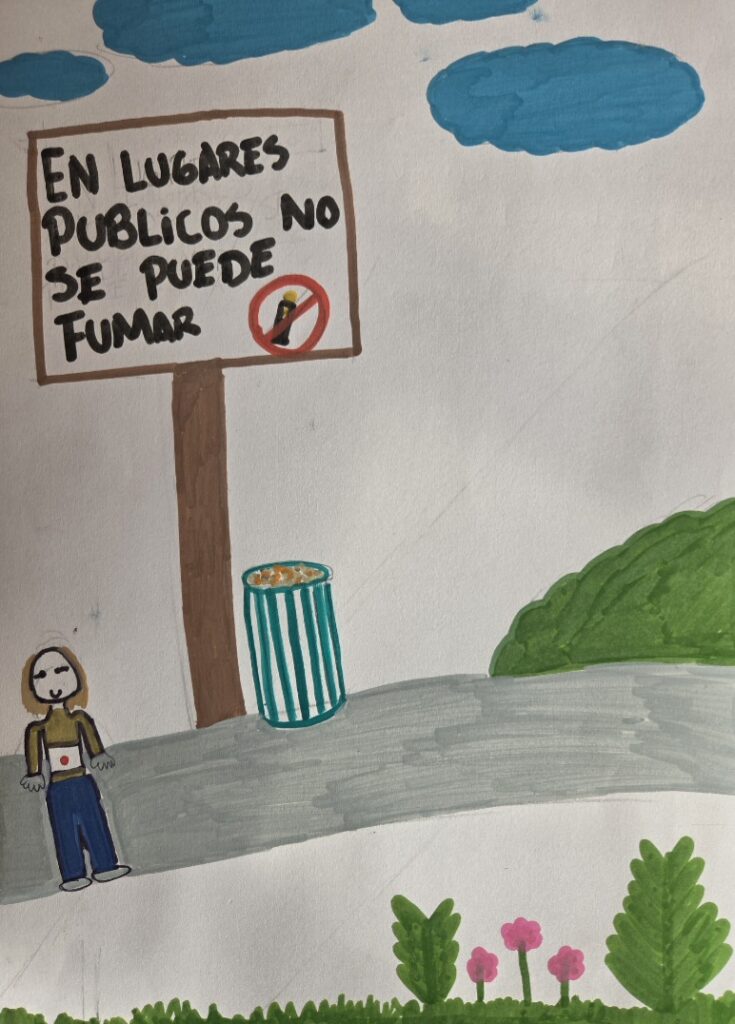 EN LUGARES
PUBLICOS NO
SE PUEDE
FUMAR